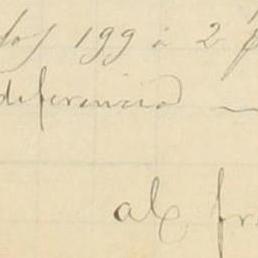 los 199 à 2 p
diferencia —
al fr